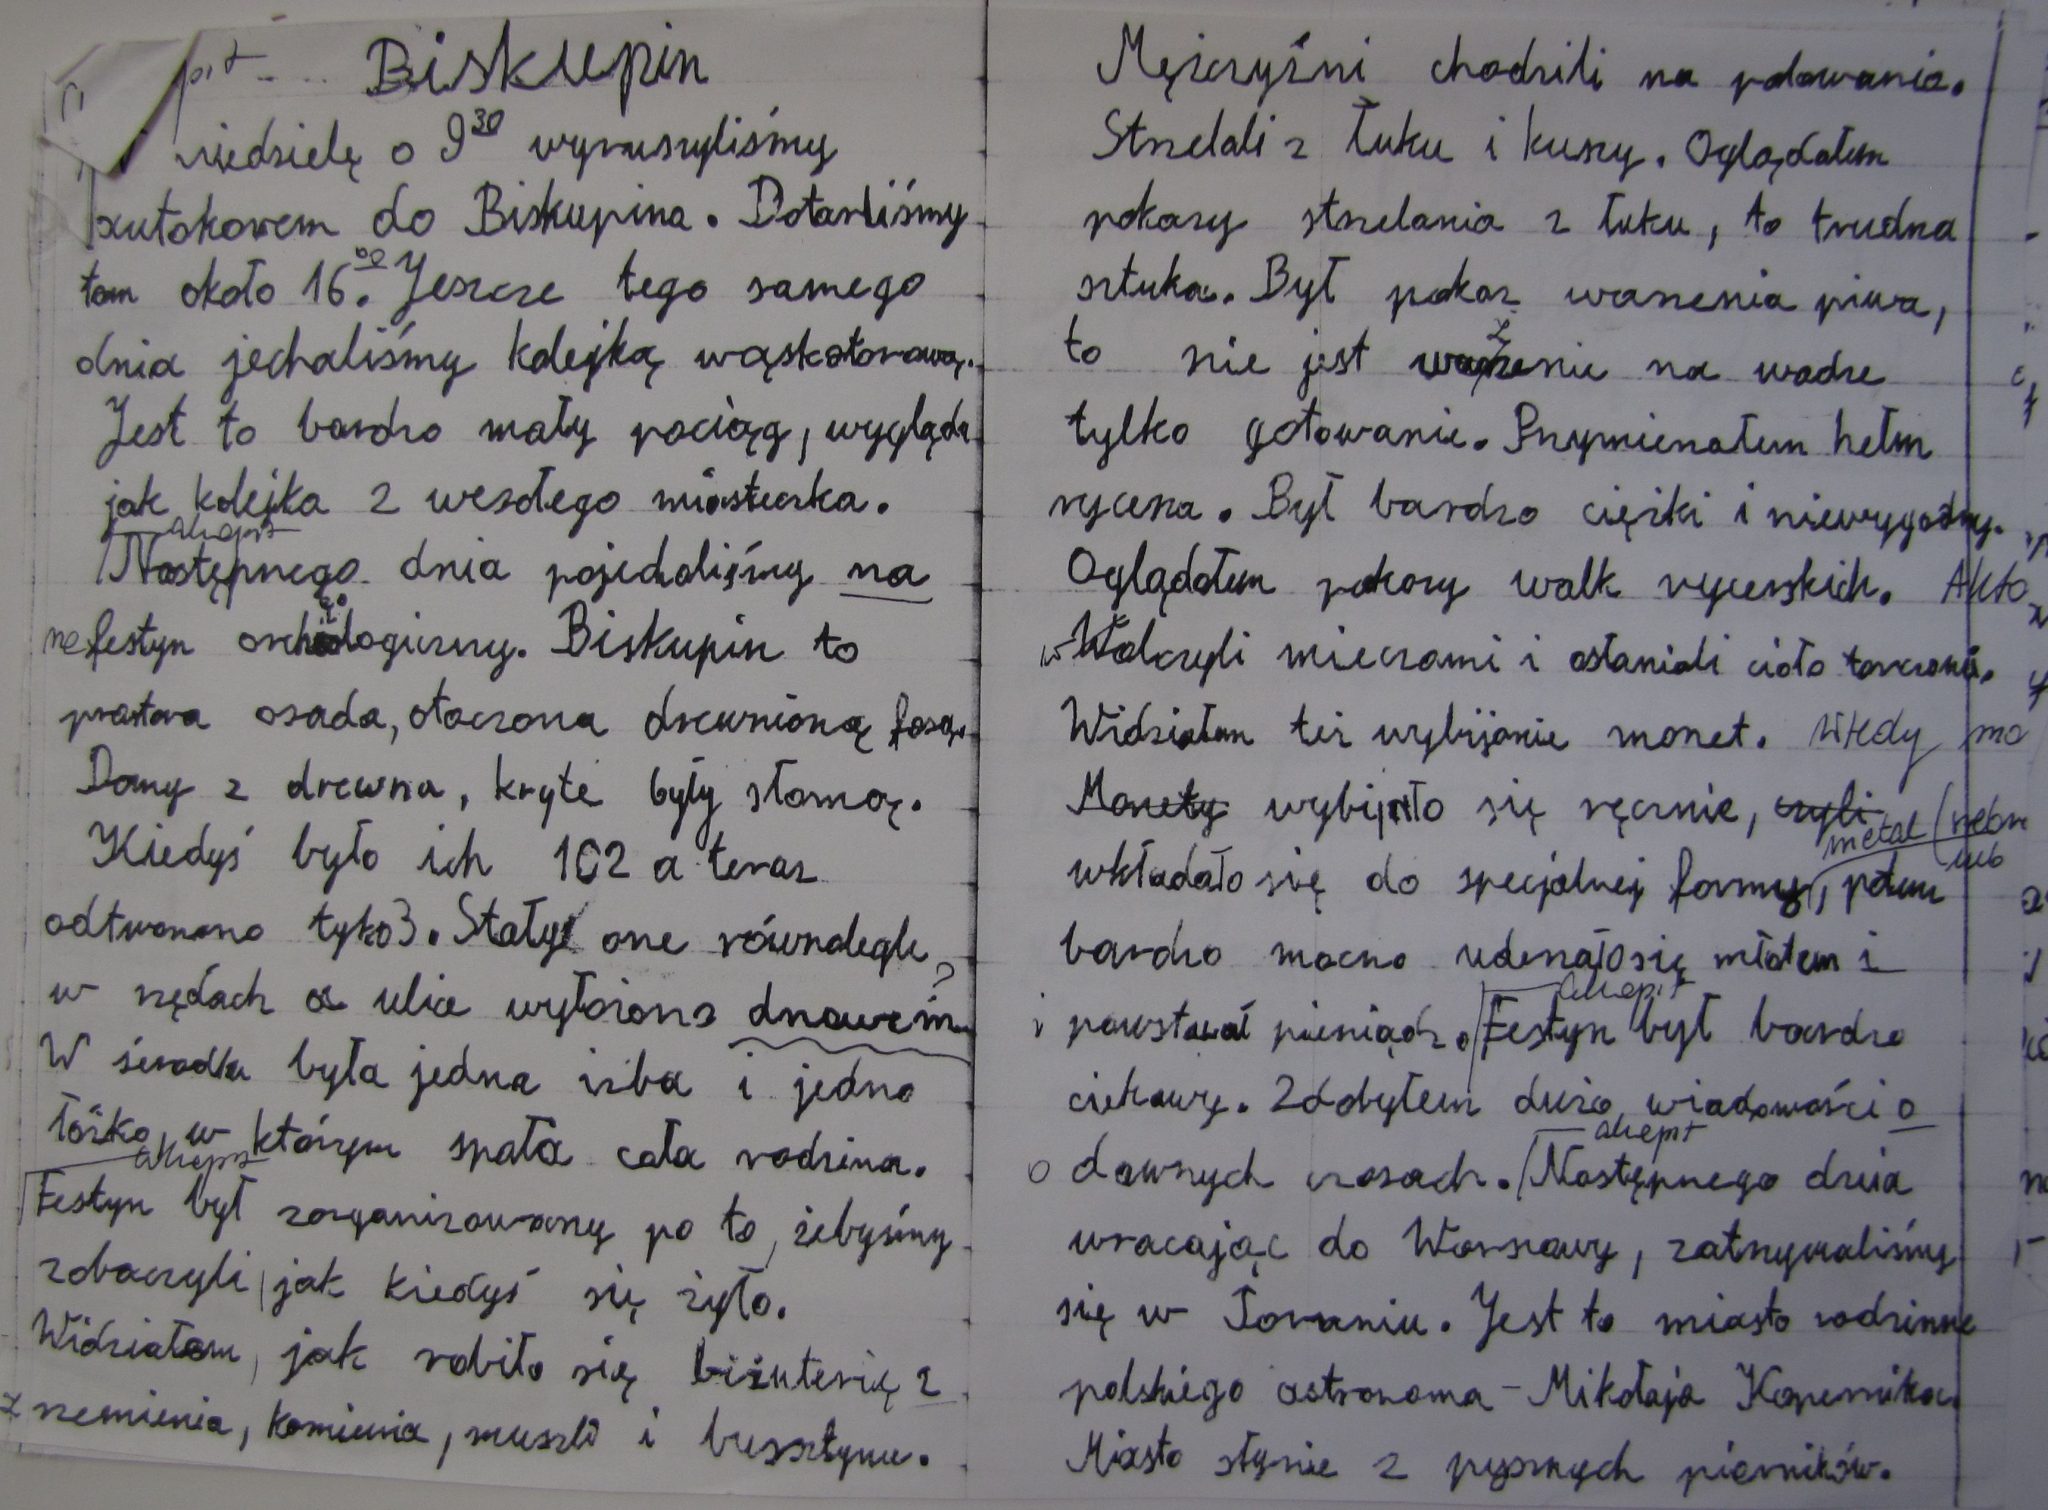 Biskupin
niedzielę o 9 30 wyruszyliśmy
autokarem do Biskupina. Dotarliśmy
tam około 16 00. Jeszcze tego samego
dnia jechaliśmy kolejką wąskotorową.
Jest to bardzo mały pociąg, wygląda
jak kolejka z wesołego miasteczka.
akapit
Następnego dnia pojechaliśmy na
na festyn archeologiczny. Biskupin to
prastara osada, otoczona drewnianą fosą.
Domy z drewna, kryte były słomą.
Kiedyś było ich 102 a teraz
odtworzono tyko 3. Stały one równolegle
w rzędach a ulice wyłożono drzewem
W środku była jedna izba i jedno
łóżko, w którym spała cała rodzina.
akapit
Festyn był zorganizowany po to, żebyśmy
zobaczyli, jak kiedyś się żyło.
Widziałem, jak robiło się biżuterię z
z rzemienia, kamienia, muszli i bursztynu.
Mężczyźni chodzili na polowania.
Strzelali z łuku i kuszy. Oglądałem
pokazy strzelania z łuku, to trudna
sztuka. Był pokaz warzenia piwa,
to nie jest ważenie na wadze
tylko gotowanie. Przymierzałem hełm
rycerza. Był bardzo ciężki i niewygodny.
Oglądałem pokazy walk rycerskich. Akto
Walczyli mieczami i osłaniali ciało tarczami.
Widziałem też wybijanie monet. Wtedy mo
Monety wybijało się ręcznie, czyli
metal
lub
wkładało się do specjalnej formy, potem
bardzo mocno uderzało się młotem i
akapit
i powstawał pieniądz. Festyn był bardzo
ciekawy. Zdobyłem dużo wiadomości o
akapit
o dawnych czasach. Następnego dnia
wracając do Warszawy, zatrzymaliśmy
się w Toruniu. Jest to miasto rodzinne
polskiego astronoma - Mikołaja Kopernika.
Miasto słynie z pysznych pierników.